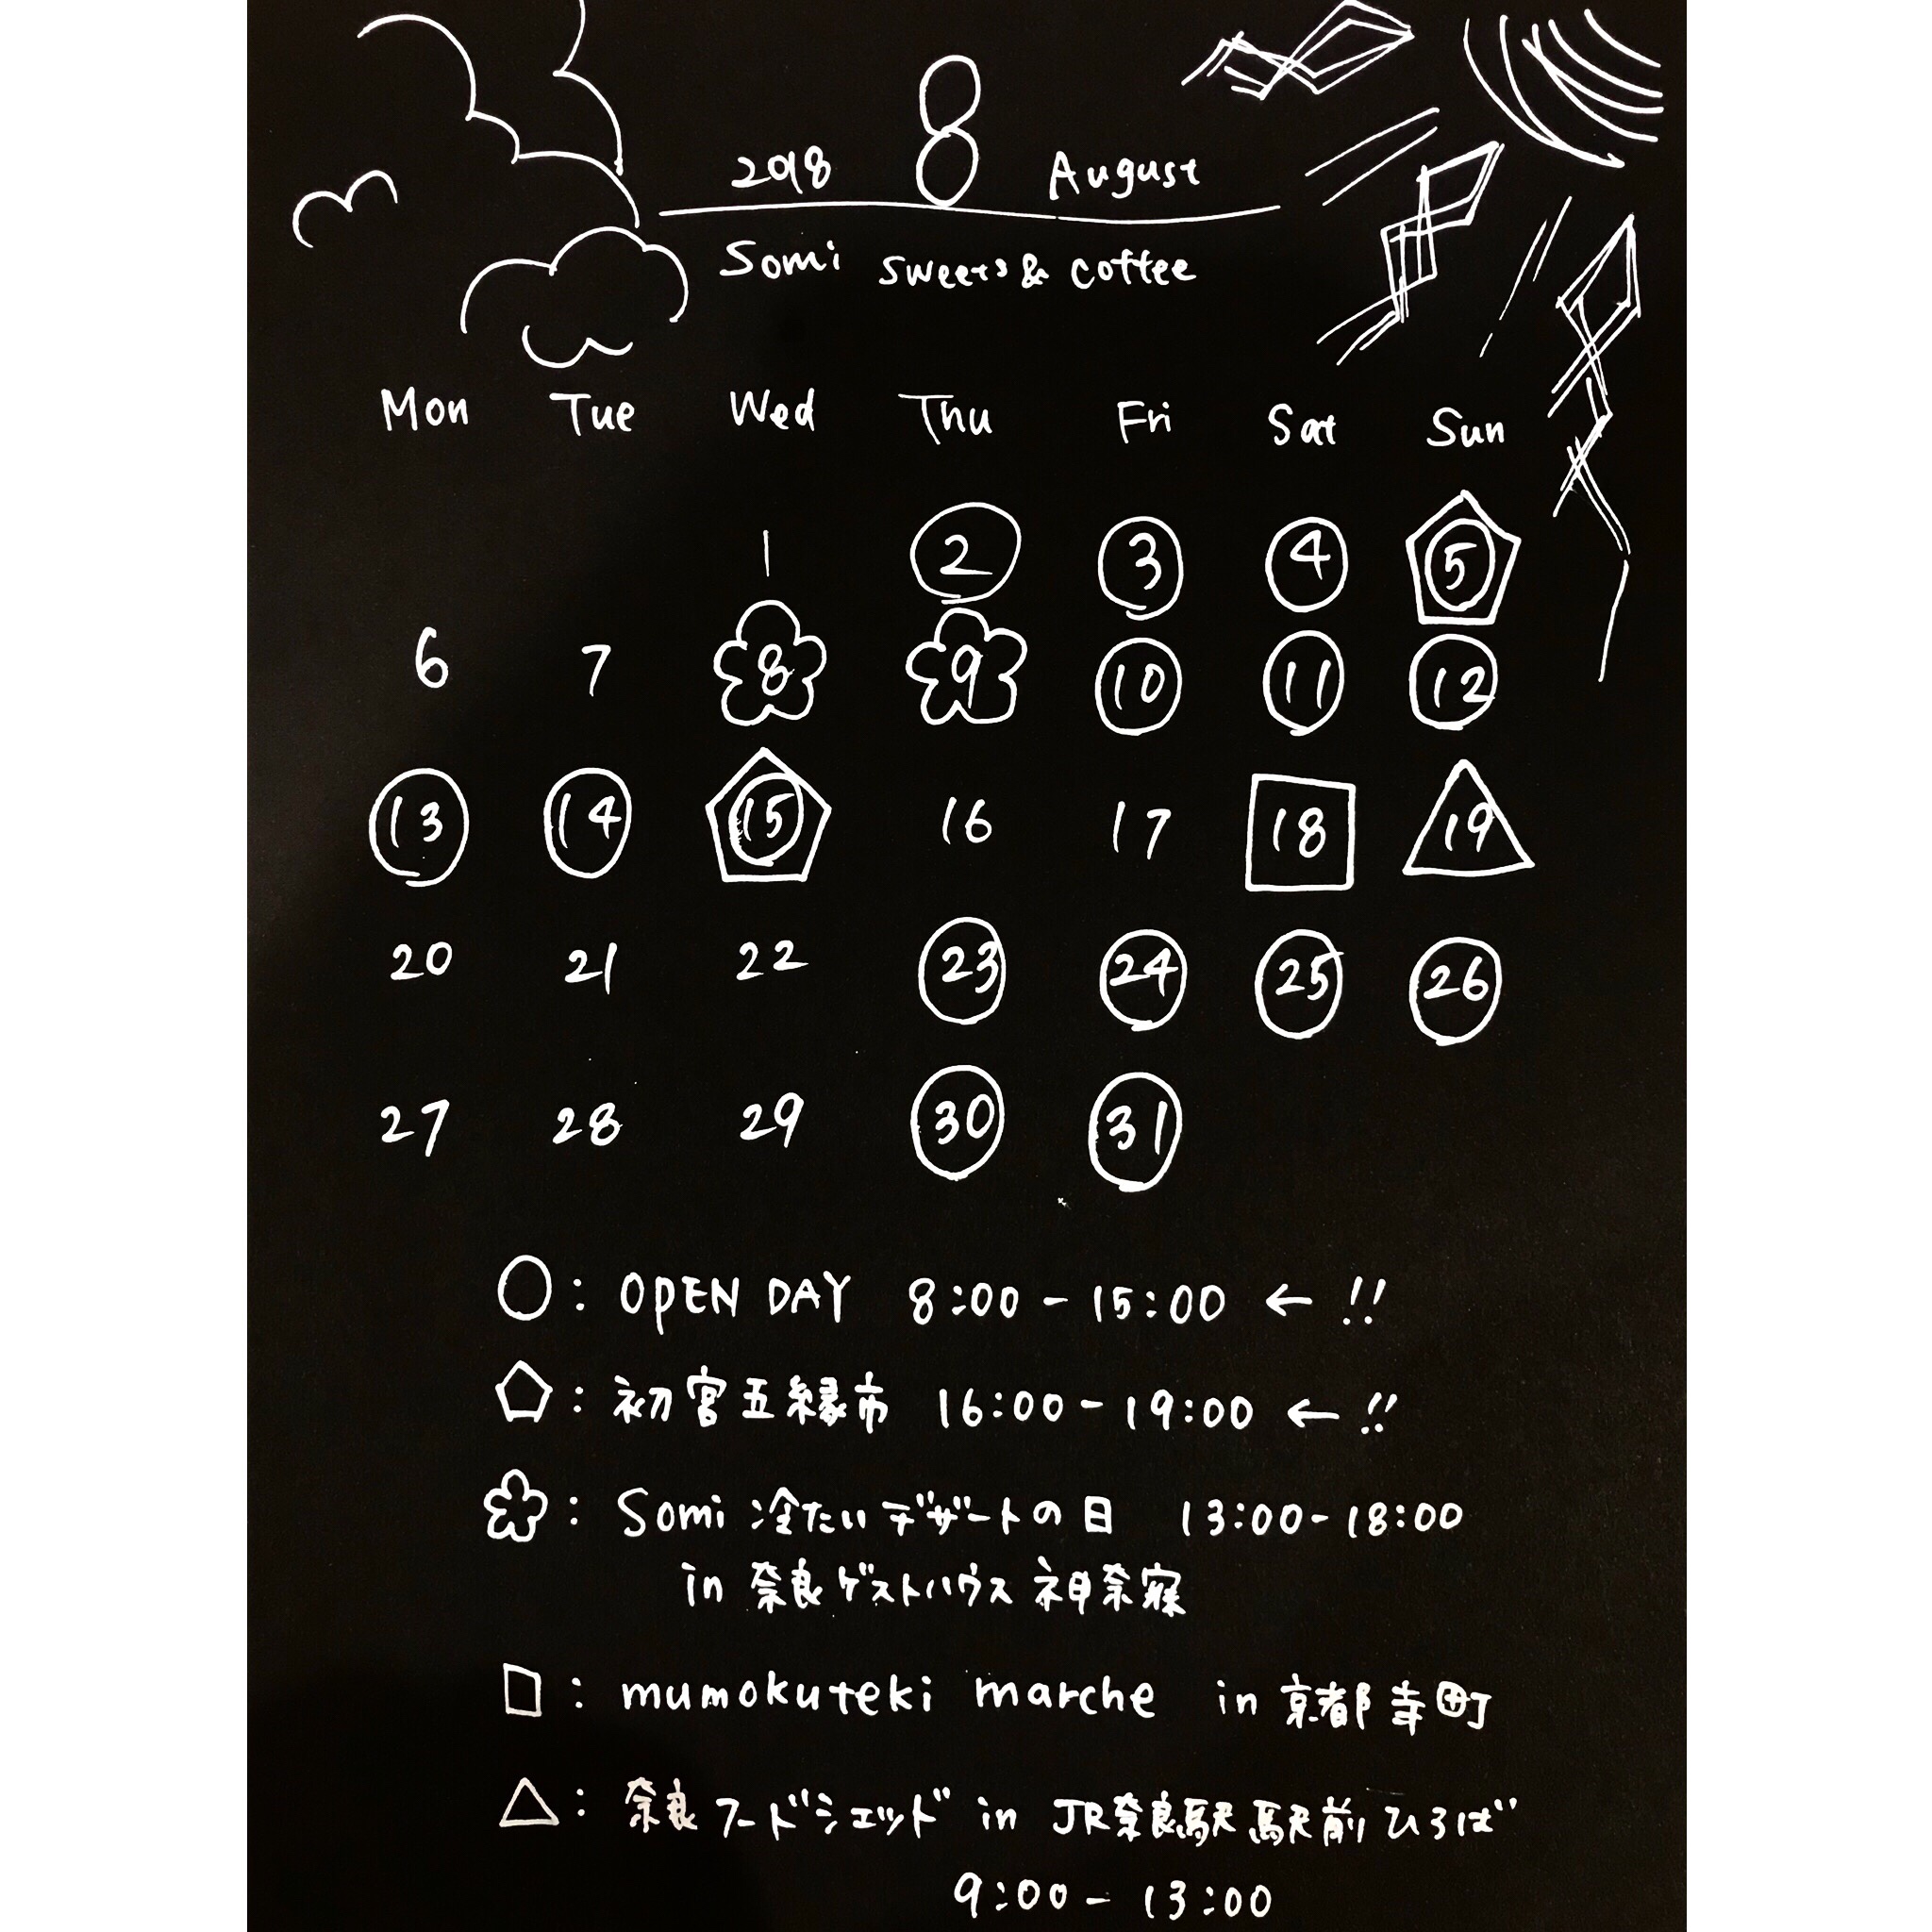 2018 8 August
Somi sweets & coffee
Mon Tue Wed Thu Fri Sat Sun
1 2 3 4 5
6 7 8 9 10 11 12
13 14 15 16 17 18 19
20 21 22 23 24 25 26
27 28 29 30 31
○: OPEN DAY 8:00-15:00 ← !!
⬠: 初宮五縁市 16:00-19:00 ← !!
: Somi 冷たいデザートの日 13:00-18:00
in 奈良ゲストハウス 神奈寐
□: mumokuteki marche in 京都寺町
△: 奈良フードシェッド in JR奈良駅駅前ひろば
9:00- 13:00